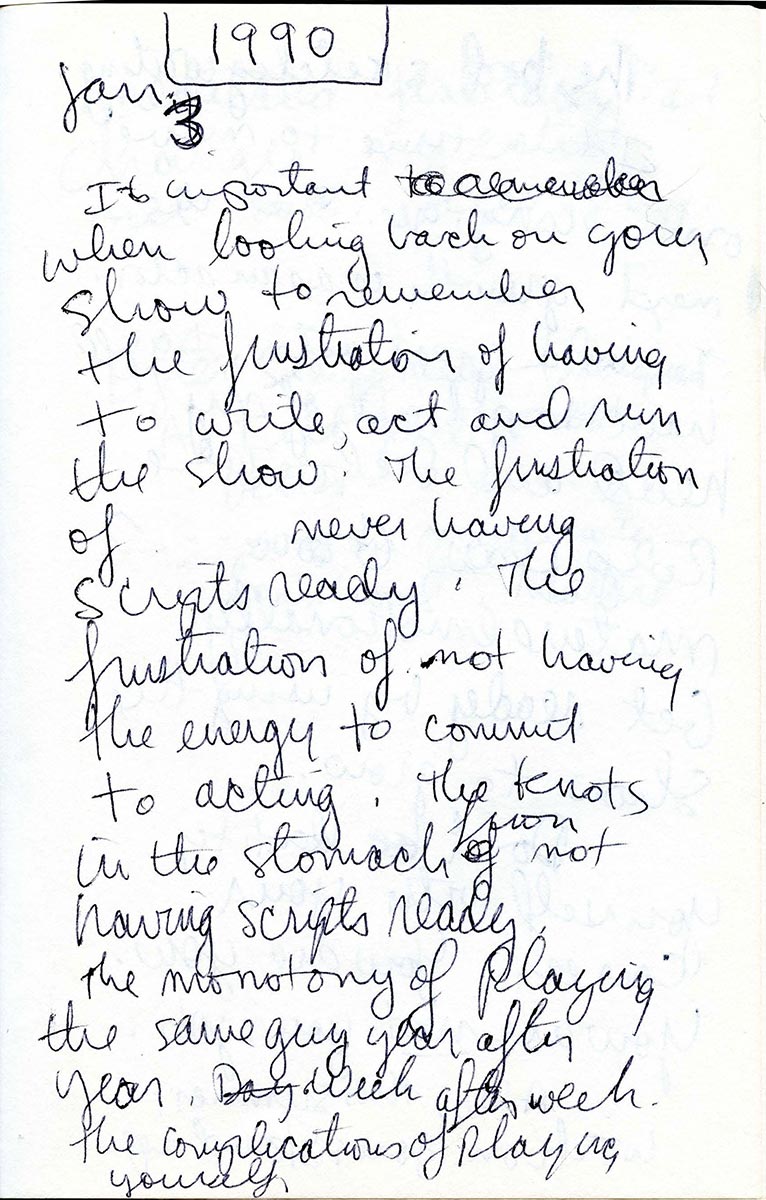 1990
Jan. 3
Its important to remember
when looking back on your
show to remember
the frustration of having
to write, act and run
the show. The frustration
of never having
scripts ready. The
frustration of not having
the energy to commit
to acting. The knots
from
in the stomach of not
having scripts ready.
The monotony of playing
the same guy year after
year. Day Week after week.
The complications of playing
yourself